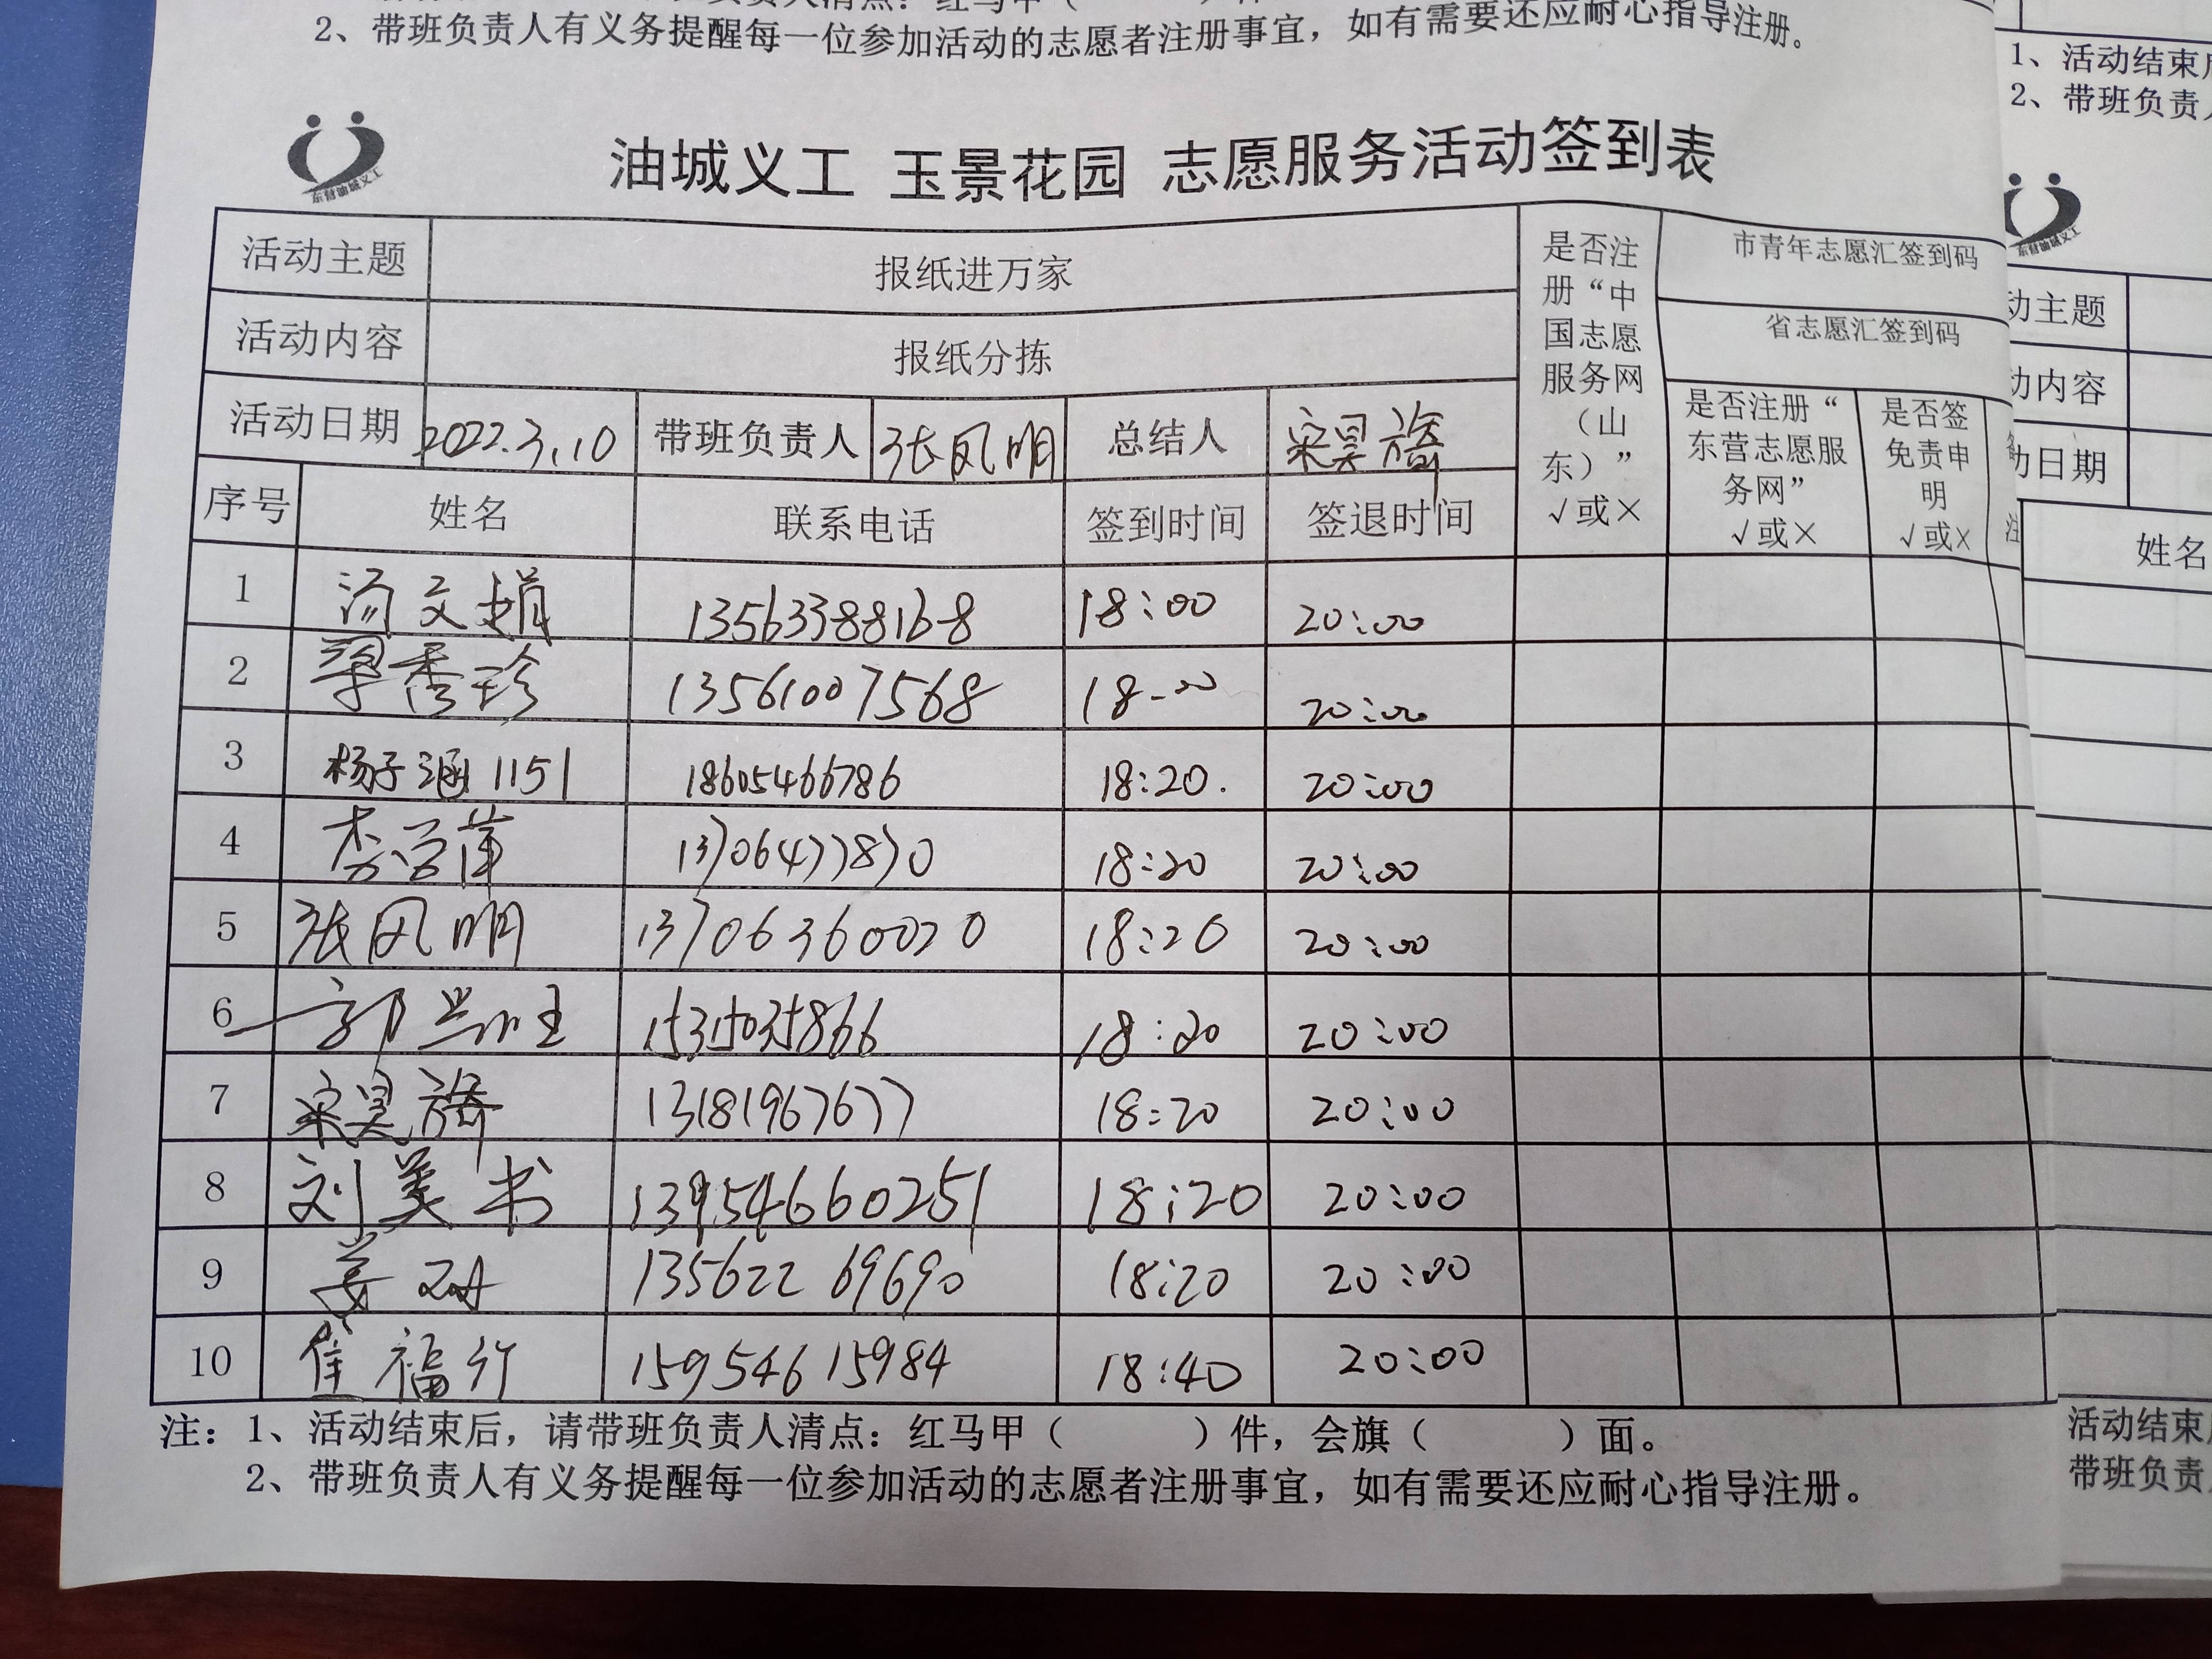 2、带班负责人有义务提醒每一位参加活动的志愿者注册事宜，如有需要还应耐心指导注册。
东营油城义工
油城义工 玉景花园 志愿服务活动签到表
活动主题 报纸进万家
活动内容 报纸分拣
活动日期 2022.3.10 带班负责人 张凤明 总结人 宋昊旖
是否注册“中国志愿服务网（山东）” √或×
市青年志愿汇签到码
省志愿汇签到码
是否注册“东营志愿服务网” √或×
是否签免责申明 √或×
备注
序号 姓名 联系电话 签到时间 签退时间
1 汤文娟 13563388168 18:00 20:00
2 梁秀珍 13561007568 18-20 20:00
3 杨子涵1151 18605466786 18:20. 20:00
4 李学莲 13706477870 18:20 20:00
5 张凤明 13706360020 18:20 20:00
6 郭 15315035866 18:20 20:00
7 宋昊旖 13181967677 18:20 20:00
8 刘美书 13954660251 18:20 20:00
9 姜 13562269690 18:20 20:00
10 崔福行 15954615984 18:40 20:00
注：1、活动结束后，请带班负责人清点：红马甲（ ）件，会旗（ ）面。
2、带班负责人有义务提醒每一位参加活动的志愿者注册事宜，如有需要还应耐心指导注册。
1、活动结束
2、带班负责
东营油城义工
动主题
动内容
动日期
姓名
活动结束
带班负责